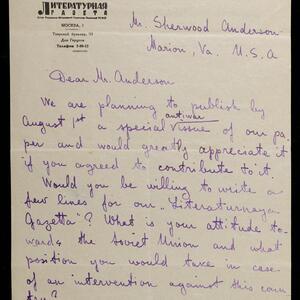 ЛИТЕРАТУРНАЯ
ГАЗЕТА
МОСКВА,
Тверской бульвар,
Дом Герцена
Телефон
Mr. Sherwood Anderson
Marion, Va. U.S.A
Dear Mr. Anderson
We are planning to publish by
antiwar
August 1st a special issue of our pa-
per and would greatly appreciate it
if you agreed to contribute to it.
Would you be willing to write a
few lines for our „Literaturnaya
Gazetta"? What is your attitude to-
wards the Soviet Union and what
position you would take in case
of an intervention against this coun
try?